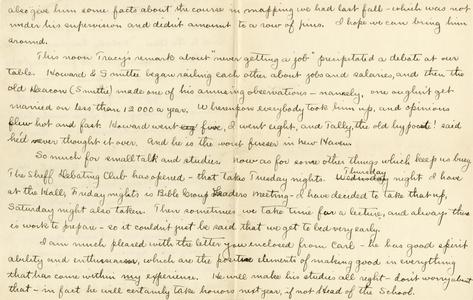 also give him some facts about the course in mapping we had last fall - which was not
under his supervision and didn't amount to a row of pins. I hope we can bring him
around.
This noon Tracy's remark about "never getting a job" precipitated a debate at our
table. Howard & Smittee began railing each other about jobs and salaries, and then the
old Deacon (Smittie) made one of his amusing observations - namely, one oughn't get
married on less than 12000 a year. Whereupon everybody took him up, and opinions
flew hot and fast. Howard went five, I went eight, and Tally, the old hypocrit! said
he'd never thought it over. And he is the worst fusser in New Haven.
So much for small talk and studies. Now as for some other things which keep us busy.
The Sheff Debating Club has opened - that takes Tuesday nights. Thursday night I have
at the Hall, Friday night is Bible Group Leaders Meeting - I have decided to take that up,
Saturday night also taken. Then sometimes we take time for a lecture, and always there
is work to prepare - so it couldn't just be said that we get to bed very early.
I am much pleased with the letter you enclosed from Carl - he has good spirit
ability and enthusiasm, which are the positive elements of making good in everything
that has come within my experience. He will make his studies all right - don't worry about
that - in fact he will certainly take honors next year, if not Head of the School.